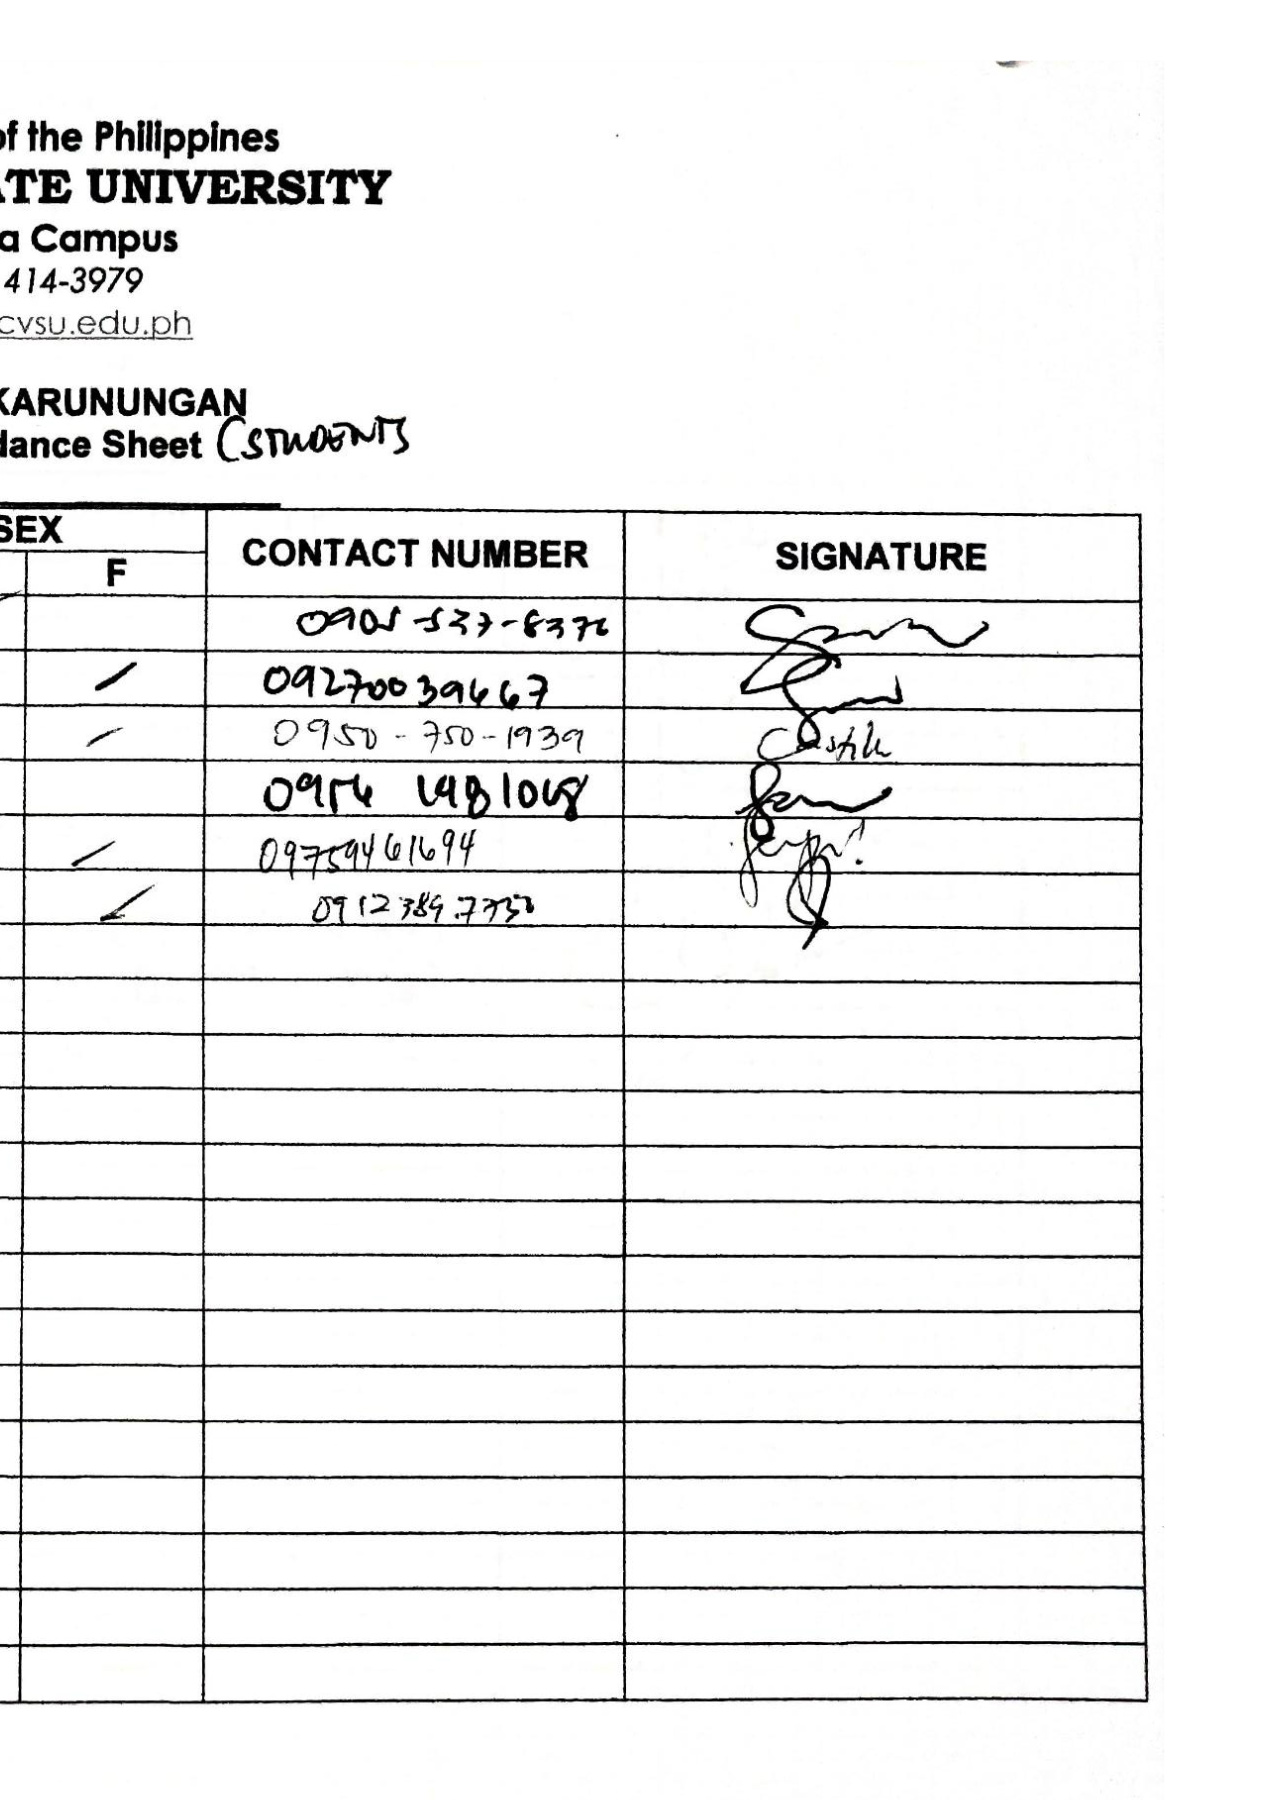 of the Philippines
ATE UNIVERSITY
a Campus
414-3979
cvsu.edu.ph
KARUNUNGAN
dance Sheet (STUDENTS
SEX
F
CONTACT NUMBER
SIGNATURE
0905-537-8376
09270039667
0950-750-1939
09759461694